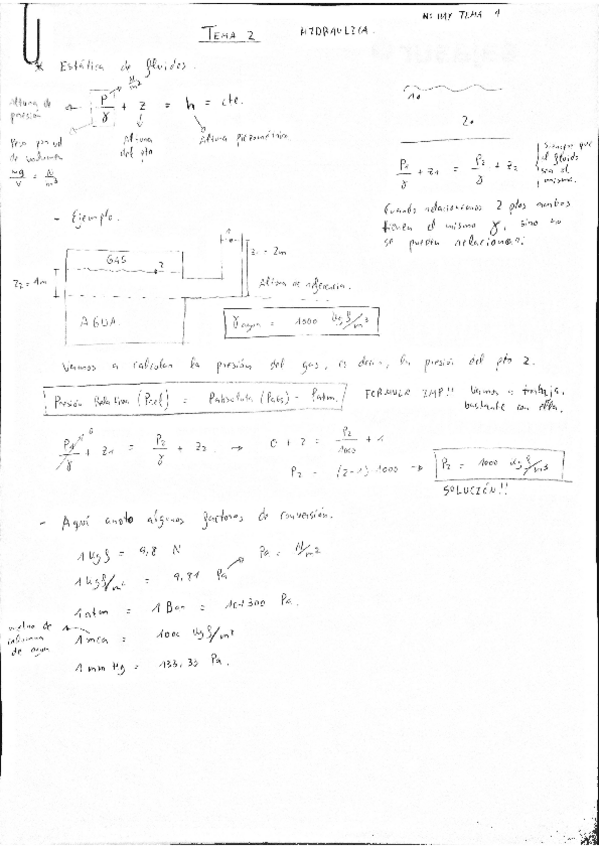 NO HAY TEMA 1
TEMA 2 HIDRAULICA.
* Estática de fluidos.
N/m²
Altura de presión ← P/γ + z = h = cte.
Peso por ud de volumen
kg/V = N/m³
Altura del pto
Altura piezométrica
1.
2.
P₁/γ + z₁ = P₂/γ + z₂
siempre que el fluido sea el mismo.
Cuando relacionamos 2 ptos ambos
tienen el mismo γ, sino no
se pueden relacionar.
- Ejemplo.
GAS
2
z₂ = 1m
z₁ = 2m
Altura de referencia.
AGUA
γagua = 1000 kgf/m³
Vamos a calcular la presión del gas, es decir, la presión del pto 2.
Presión Relativa (Prel) = Pabsoluta (Pabs) - Patm.
FORMULA IMP!! Vamos a trabaja.
bastante con ella.
P₁/γ + z₁ = P₂/γ + z₂ → 0 + 2 = P₂/1000 + 1
P₂ = (2-1) 1000 → P₂ = 1000 kgf/m²
SOLUCIÓN!!
- Aquí anoto algunos factores de conversión.
1 kgf = 9,8 N
Pa = N/m²
1 kgf/m² = 9,81 Pa
1 atm = 1 Bar = 101300 Pa.
metro de columna de agua
1 mca = 1000 kgf/m²
1 mm Hg = 133,33 Pa.